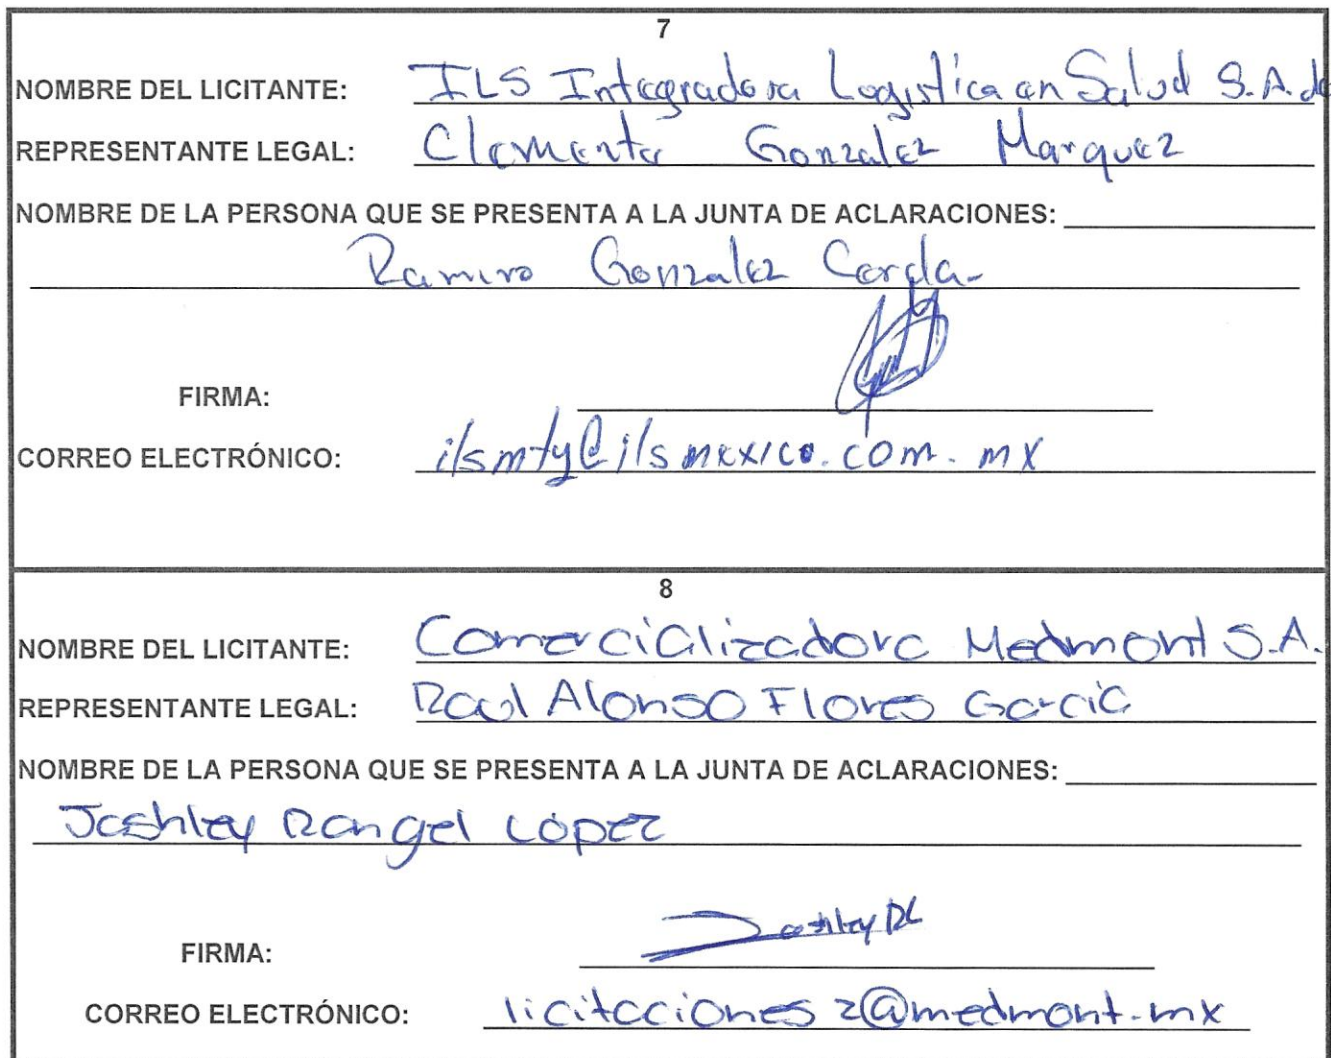 7
NOMBRE DEL LICITANTE: ILS Integradora Logistica en Salud S.A. de
REPRESENTANTE LEGAL: Clemente Gonzalez Marquez
NOMBRE DE LA PERSONA QUE SE PRESENTA A LA JUNTA DE ACLARACIONES:
Ramiro Gonzalez Cerda
FIRMA:
CORREO ELECTRÓNICO: ilsmty@ilsmexico.com.mx
8
NOMBRE DEL LICITANTE: Comercializadora Medmont S.A.
REPRESENTANTE LEGAL: Raul Alonso Flores Garcia
NOMBRE DE LA PERSONA QUE SE PRESENTA A LA JUNTA DE ACLARACIONES:
Jashley Rangel López
FIRMA: Jashley RL
CORREO ELECTRÓNICO: licitaciones2@medmont.mx